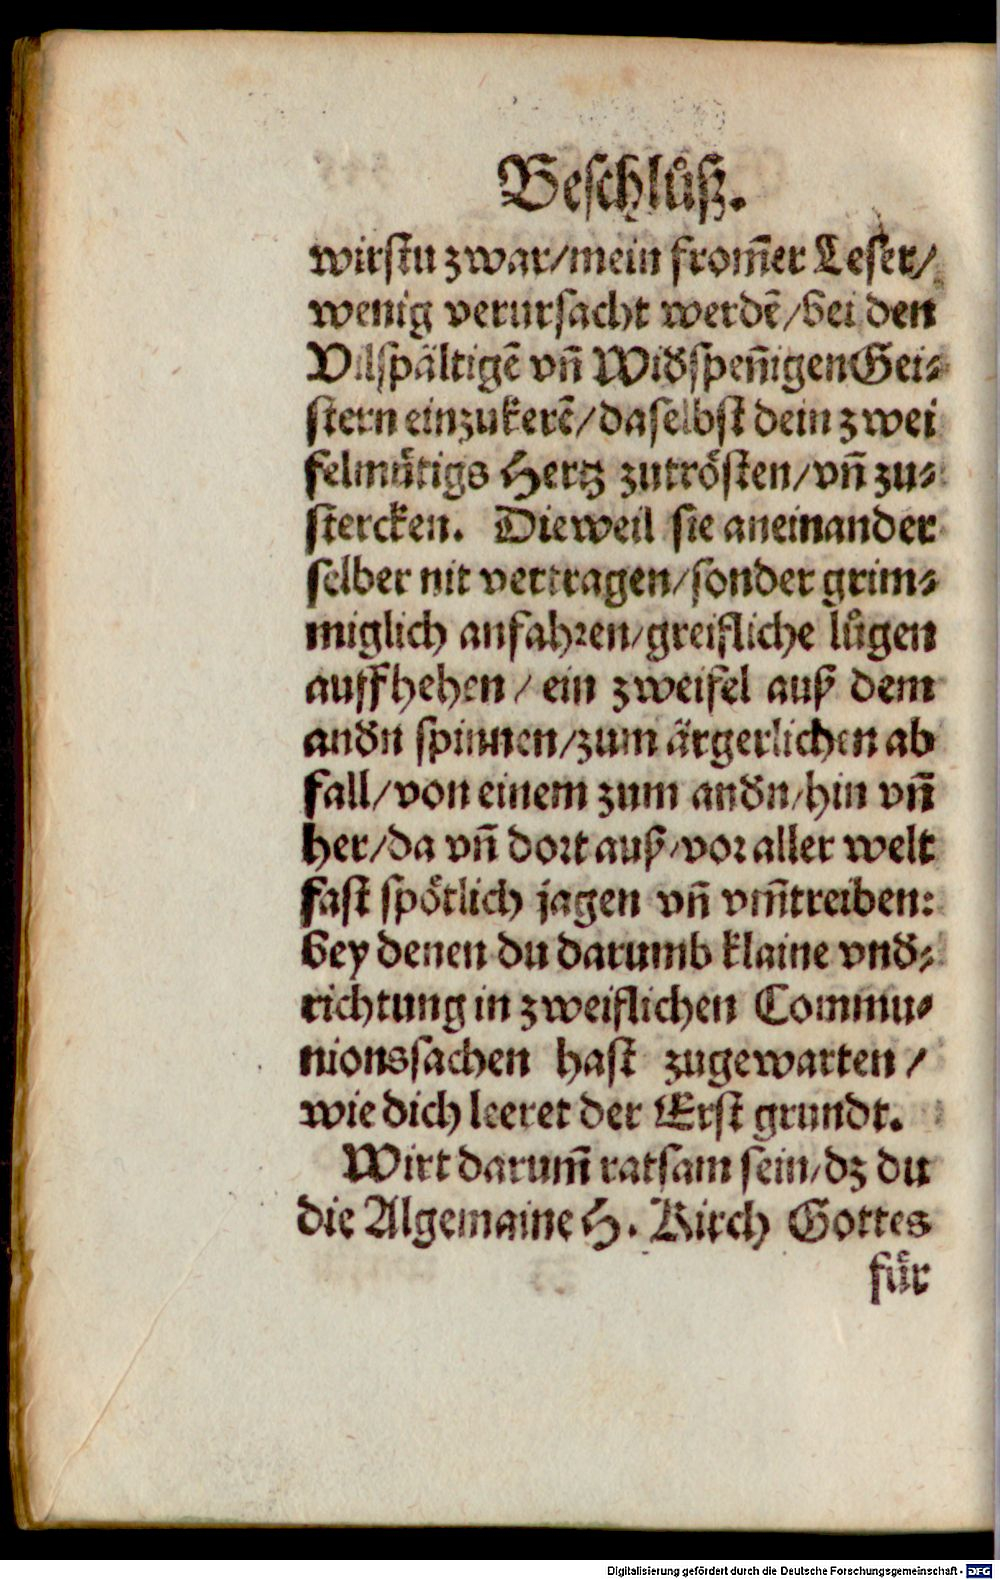 Beschluͦß.
wirstu zwar/mein from̃er Leser/
wenig verursacht werdẽ/bei den
Vilspaͤltigẽ vñ Widspeñigen Gei⸗
stern einzukerẽ/daselbst dein zwei
felmuͤtigs Hertz zutroͤsten/vñ zu⸗
stercken. Dieweil sie aneinander
selber nit vertragen/sonder grim⸗
miglich anfahꝛen/greifliche luͤgen
auffhehen/ ein zweifel auß dem
andn spinnen/zum aͤrgerlichen ab
fall/von einem zum andn/hin vñ
her/da vñ doꝛt auß/voꝛ aller welt
fast spoͤtlich jagen vñ vm̃treiben:
bey denen du darumb klaine vnd⸗
richtung in zweiflichen Commu⸗
nionssachen hast zugewarten/
wie dich leeret der Erst grundt.
Wirt darum̃ ratsam sein/dz du
die Algemaine H. Kirch Gottes
fuͤr
Digitalisierung gefördert durch die Deutsche Forschungsgemeinschaft - DFG